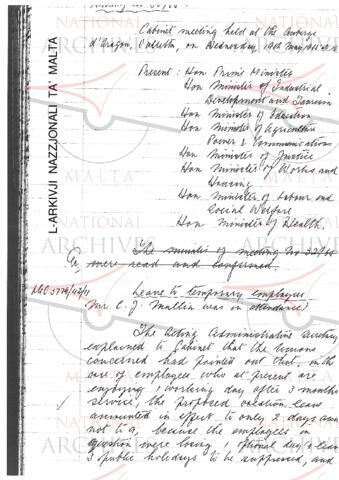 Cabinet meeting held at the Auberge
d'Aragon, Valletta, on Wednesday, 18th May
Present: Hon Prime Minister
Hon Minister of Industrial
Development and Tourism
Hon Minister of Education
Hon Minister of Agriculture
Power & Communications
Hon Minister of Justice
Hon Minister of Works and
Housing
Hon Minister of Labour and
Social Welfare
Hon Minister of Health.
The minutes of meeting No 32/66
were read and confirmed.
Leave to temporary employees
Mr C. J. Mallia was in attendance)
The Acting Administrative Secretary
explained to Cabinet that the Unions
concerned had pointed out that, in the
case of employees who at present are
enjoying 1 working day after 3 months
service, the proposed vacation leave
amounted in effect to only 2 days and
not to 9, because the employees in
question were losing 1 optional day's leave
3 public holidays to be suppressed, and
L-ARKIVJI NAZZJONALI TA' MALTA
NATIONAL
ARCHIVES
MALTA